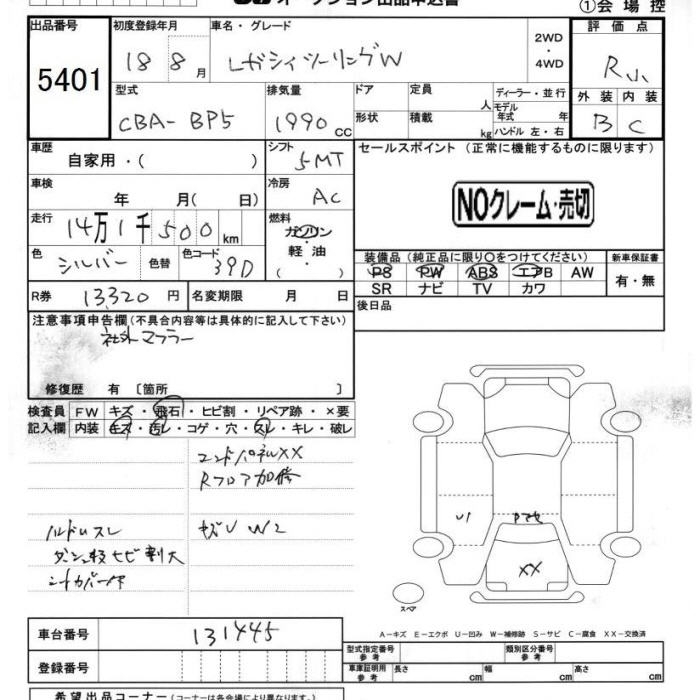 オークション出品申込書
①会場控
出品番号
5401
初度登録年月
18 8月
車名・グレード
レガシィツーリングW
2WD
・
4WD
評価点
R
外装 内装
B C
型式
CBA-BP5
排気量
1990cc
ドア
形状
定員 人
積載 kg
ディーラー・並行
モデル年式 年
ハンドル 左・右
車歴
自家用・( )
シフト
5MT
セールスポイント (正常に機能するものに限ります)
NOクレーム・売切
車検
年 月( 日)
冷房
AC
走行
14万1千500km
燃料
ガソリン
軽油
( )
色
シルバー
色替
色コード
39D
装備品(純正品に限り○をつけてください)
PS PW ABS エアB AW
SR ナビ TV カワ
新車保証書
有・無
R券
13,320円
名変期限 月 日
後日品
注意事項申告欄(不具合内容等は具体的に記入して下さい)
社外マフラー
修復歴 有 〔箇所 〕
検査員
記入欄
FW キズ・飛石・ヒビ割・リペア跡・×要
内装 キズ・汚レ・コゲ・穴・スレ・キレ・破レ
エンドパネルXX
Rフロア加修
ハルドルスレ
キズU W2
ダッシュ枝ヒビ割大
シートカバー付
U1
XX
スペア
A-キズ E-エクボ U-凹み W-補修跡 S-サビ C-腐食 XX-交換済
車台番号
131445
登録番号
型式指定番号 参考
類別区分番号 参考
車庫証明用 参考
長さ cm 幅 cm 高さ cm
希望出品コーナー